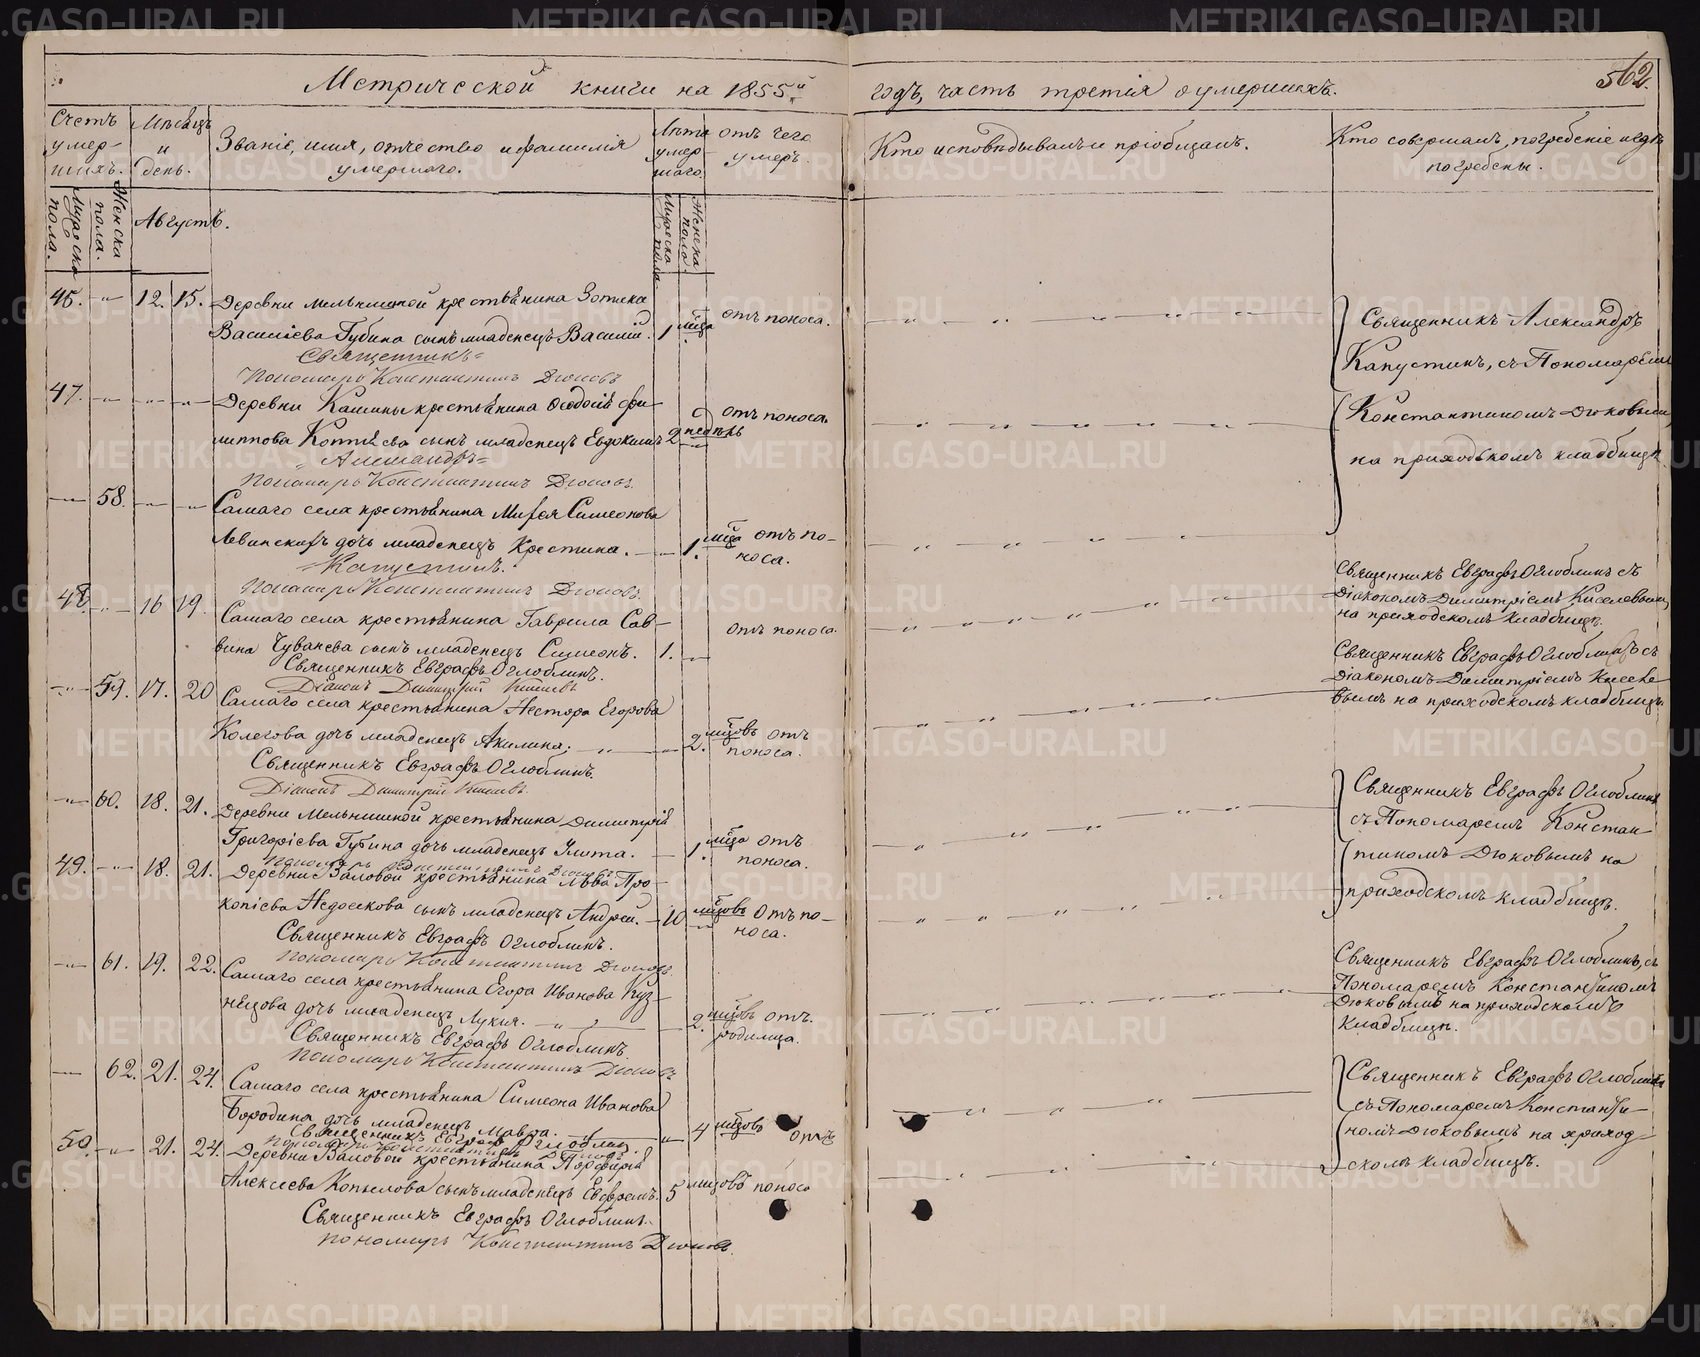 Метрической книги на 1855й годъ, часть третія о умершихъ.
562.
Счетъ умер- шихъ.
Мѣсяцъ и день.
Званіе, имя, отчество и фамилія умершаго.
Лѣта умер- шаго.
отъ чего умеръ.
Кто исповѣдывалъ и пріобщалъ.
Кто совершалъ погребеніе и гдѣ погребены.
Мужеска пола.
Женска пола.
Августъ.
Мужеска пола
Женска пола.
46. -"- 12. 15. Деревни Мельнишной крестьянина Зотика
Василіева Губина сынъ младенецъ Василій. 1 мѣца отъ поноса.
Священникъ
Пономарь Константинъ Дюковъ
47. -"- -"- -"- Деревни Кашины крестьянина Ѳеодосія Фи-
липпова сынъ младенецъ Евдокимъ 2 недѣль отъ поноса.
Александръ
Пономарь Константинъ Дюковъ.
-"- 58. -"- -"- Самаго села крестьянина Симеонова
дочь младенецъ Крестина. 1. мѣца отъ по-
носа.
Капустинъ.
Пономарь Константинъ Дюковъ.
48. -"- 16 19. Самаго села крестьянина Гаврила Сав-
вина Чуваева сынъ младенецъ Симеонъ. 1. отъ поноса.
Священникъ Евграфъ Оглоблинъ.
Діаконъ Димитрій Киселевъ
-"- 59. 17. 20 Самаго села крестьянина Нестора Егорова
Колегова дочь младенецъ Акилина. 2. мѣцовъ отъ
поноса.
Священникъ Евграфъ Оглоблинъ.
Діаконъ Димитрій Киселевъ.
-"- 60. 18. 21. Деревни Мельнишной крестьянина Димитрія
Григоріева Губина дочь младенецъ Улита. 1. мѣца отъ
поноса.
Пономарь Константинъ Дюковъ
49. -"- 18. 21. Деревни Валовой крестьянина Льва Про-
копіева сынъ младенецъ Андрей. 10 мѣцовъ отъ по-
носа.
Священникъ Евграфъ Оглоблинъ.
Пономарь Константинъ Дюковъ.
-"- 61. 19. 22. Самаго села крестьянина Егора Иванова Куз-
нецова дочь младенецъ Лукія. 2. мѣцовъ отъ
родимца.
Священникъ Евграфъ Оглоблинъ.
Пономарь Константинъ Дюковъ
— 62. 21. 24. Самаго села крестьянина Симеона Иванова
Бородина дочь младенецъ Мавра. 4 мѣцовъ отъ
Священникъ Евграфъ Оглоблинъ.
Пономарь Константинъ Дюковъ
50. -"- 21. 24. Деревни Валовой крестьянина Порфирія
Алексеева Копылова сынъ младенецъ Ефремъ. 5 мѣцовъ поноса
Священникъ Евграфъ Оглоблинъ.
Пономарь Константинъ Дюковъ.
Священникъ Александръ
Капустинъ, съ Пономаремъ
Константиномъ Дюковымъ,
на приходскомъ кладбищѣ
Священникъ Евграфъ Оглоблинъ съ
Діакономъ Димитріемъ Киселевымъ,
на приходскомъ кладбищѣ.
Священникъ Евграфъ Оглоблинъ съ
Діакономъ Димитріемъ Киселе-
вымъ на приходскомъ кладбищѣ.
Священникъ Евграфъ Оглоблинъ
съ Пономаремъ Констан-
тиномъ Дюковымъ на
приходскомъ кладбищѣ.
Священникъ Евграфъ Оглоблинъ, съ
Пономаремъ Константиномъ
Дюковымъ на приходскомъ
кладбищѣ.
Священникъ Евграфъ Оглоблинъ
съ Пономаремъ Константи-
номъ Дюковымъ на приход-
скомъ кладбищѣ.
METRIKI.GASO-URAL.RU